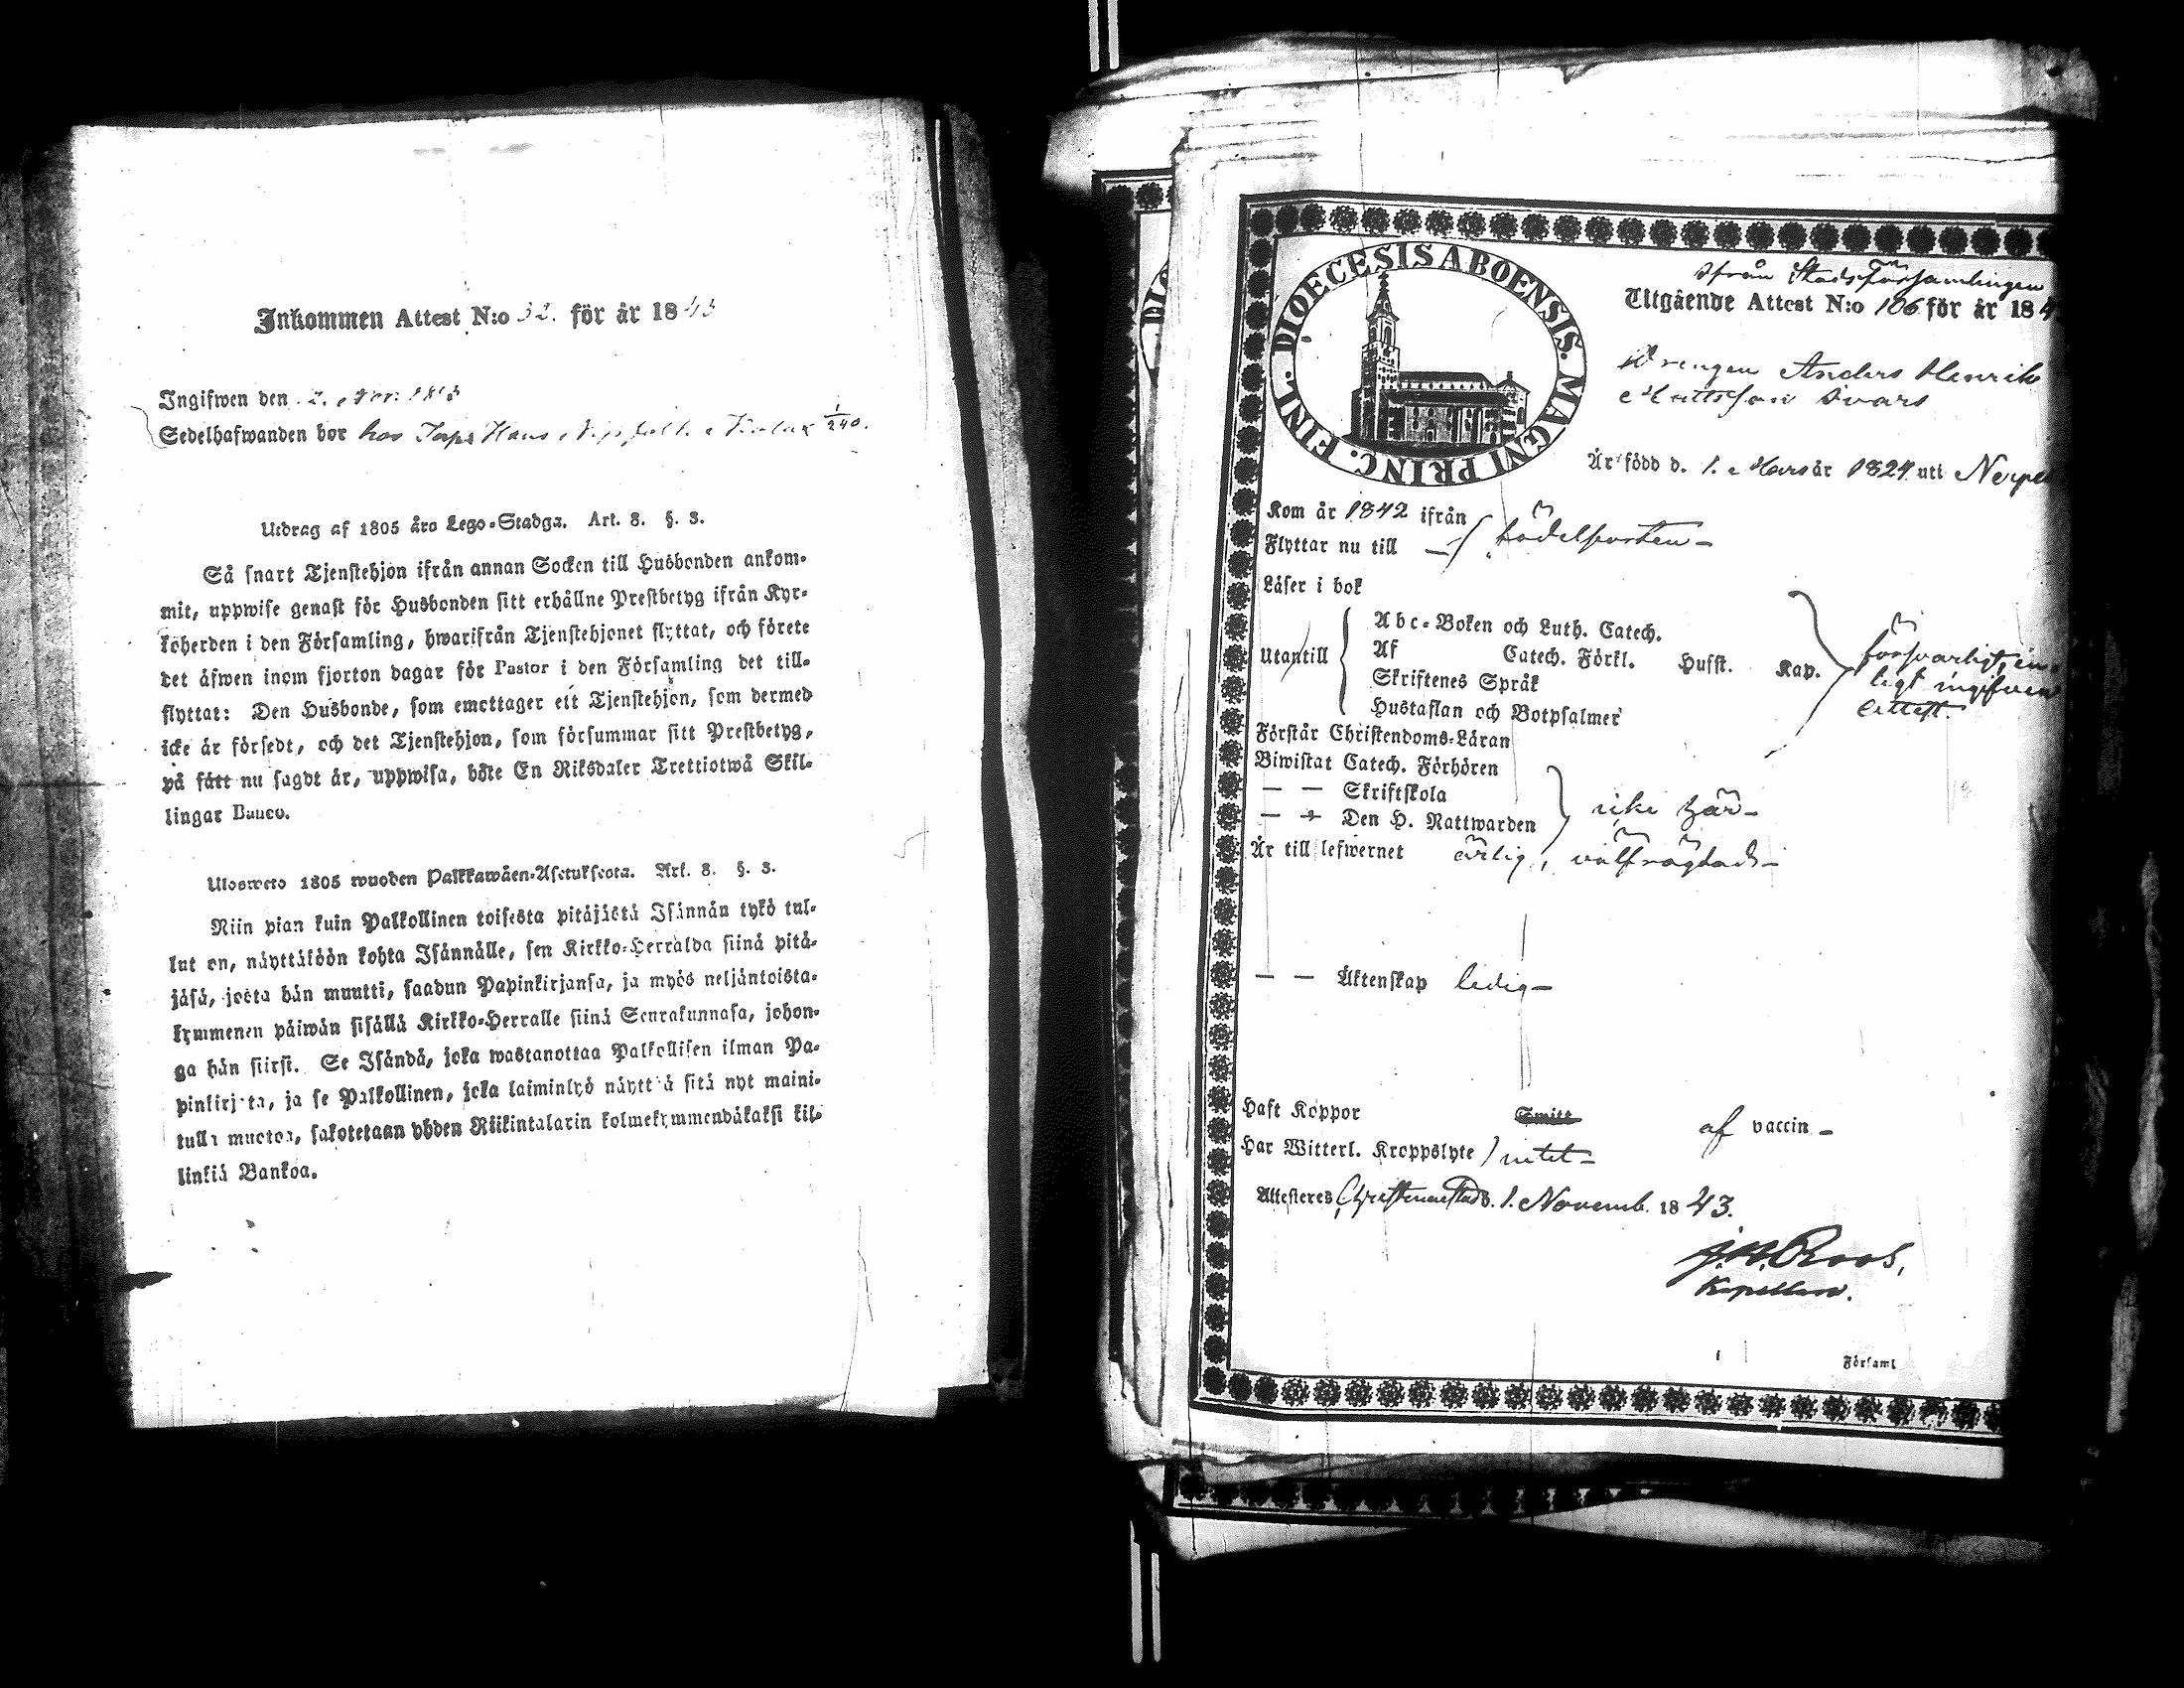 Inkommen Attest N:o 32. för år 1843
Ingifwen den 2. Nov. 1843
Sedelhafwanden bor hos Hans 1/240.
Utdrag af 1805 års Lego-Stadga. Art. 8. §. 3.
Så snart Tjenstehjon ifrån annan Socken till Husbonden ankom-
mit, uppwise genast för Husbonden sitt erhållne Prestbetyg ifrån Kyr-
koherden i den Församling, hwarifrån Tjenstehjonet flyttat, och förete
det äfwen inom fjorton dagar för Pastor i den Församling det till-
flyttat: Den Husbonde, som emottager ett Tjenstehjon, som dermed
icke är försedt, och det Tjenstehjon, som försummar sitt Prestbetyg,
på sätt nu sagdt är, uppwisa, böte En Riksdaler Trettiotwå Skil-
lingar Banco.
Ulosweto 1805 wuoden Palkkawäen-Asetuksesta. Art. 8. §. 3.
Niin pian kuin Palkollinen toisesta pitäjästä Isännän tykö tul-
lut on, näyttäköön kohta Isännälle, sen Kirkko-Herralda siinä pitä-
jäsä, josta hän muutti, saadun Papinkirjansa, ja myös neljäntoista-
kymmenen päiwän sisällä Kirkko-Herralle siinä Seurakunnasa, johon-
ga hän siirsi. Se Isändä, joka wastanottaa Palkollisen ilman Pa-
pinkirjata, ja se Palkollinen, joka laiminlyö näyttää sitä nyt maini-
tulla muotoa, sakotetaan yhden Riikintalarin kolmekymmendäkaksi kil-
linkiä Bankoa.
DIOECESIS ABOENSIS. MAGNI PRINC. FINL.
ifrån Stadsförsamlingen
Utgående Attest N:o 106 för år 184
Drengen Anders Henrik
Mattsson Svars
Är född d. 1. Mars år 1824 uti
Kom år 1842 ifrån
Flyttar nu till födelseorten
Läser i bok
Utantill
Abc-Boken och Luth. Catech.
Af Catech. Förkl. Husst. Kap.
Skriftenes Språk
Hustaflan och Botpsalmer
försvarligt, en-
ligt ingifven
attest.
Förstår Christendoms-Läran
Biwistat Catech. Förhören
— — Skriftskola
— — Den H. Nattwarden
icke här
Är till lefwernet ärlig, välfrägdad
— — Äktenskap ledig
Haft Koppor Smitt af vaccin
Har Witterl. Kroppslyte intet
Attesteres Christinestad d. 1. Novemb. 1843.
J. H. Roos,
Kapellan.
Församl